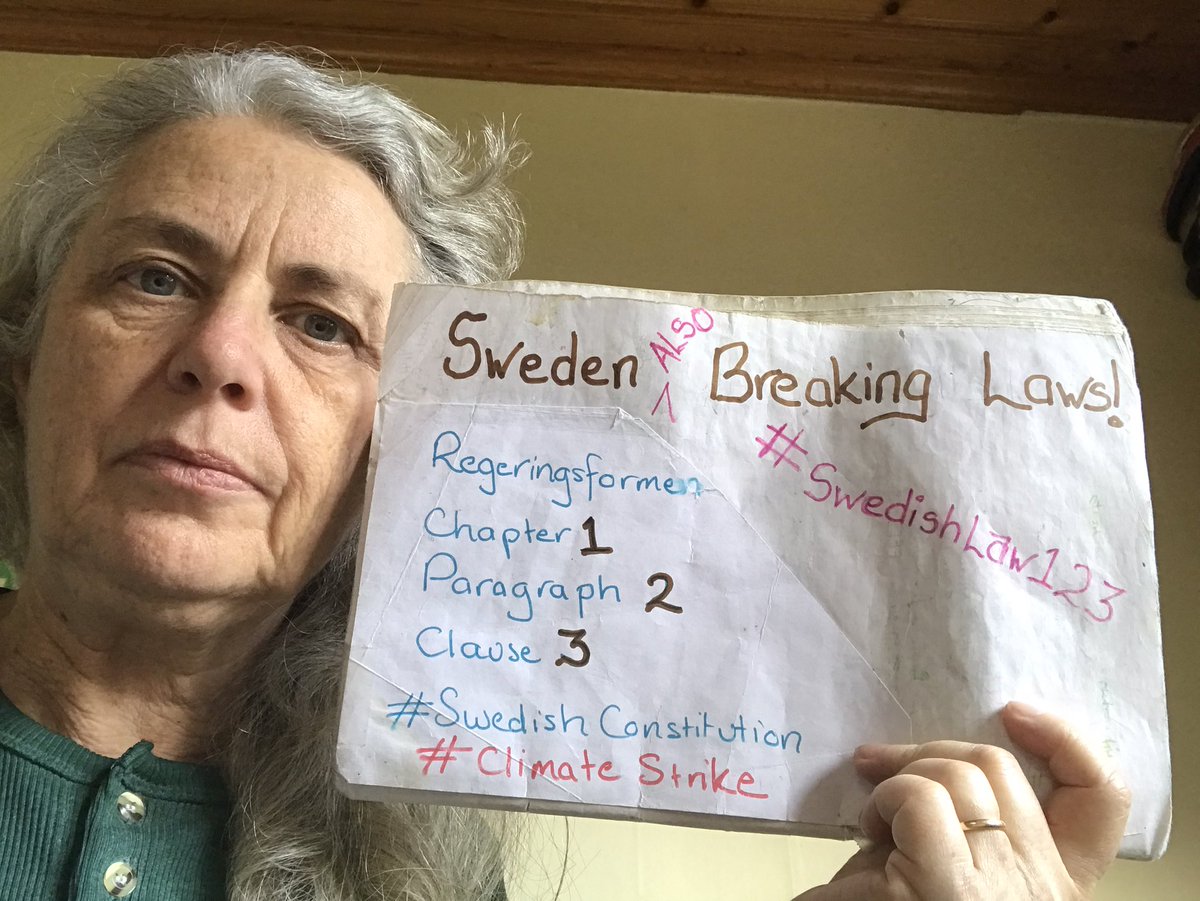 Sweden ALSO Breaking Laws!
#SwedishLaw123
Regeringsformen
Chapter 1
Paragraph 2
Clause 3
#Swedish Constitution
#Climate Strike